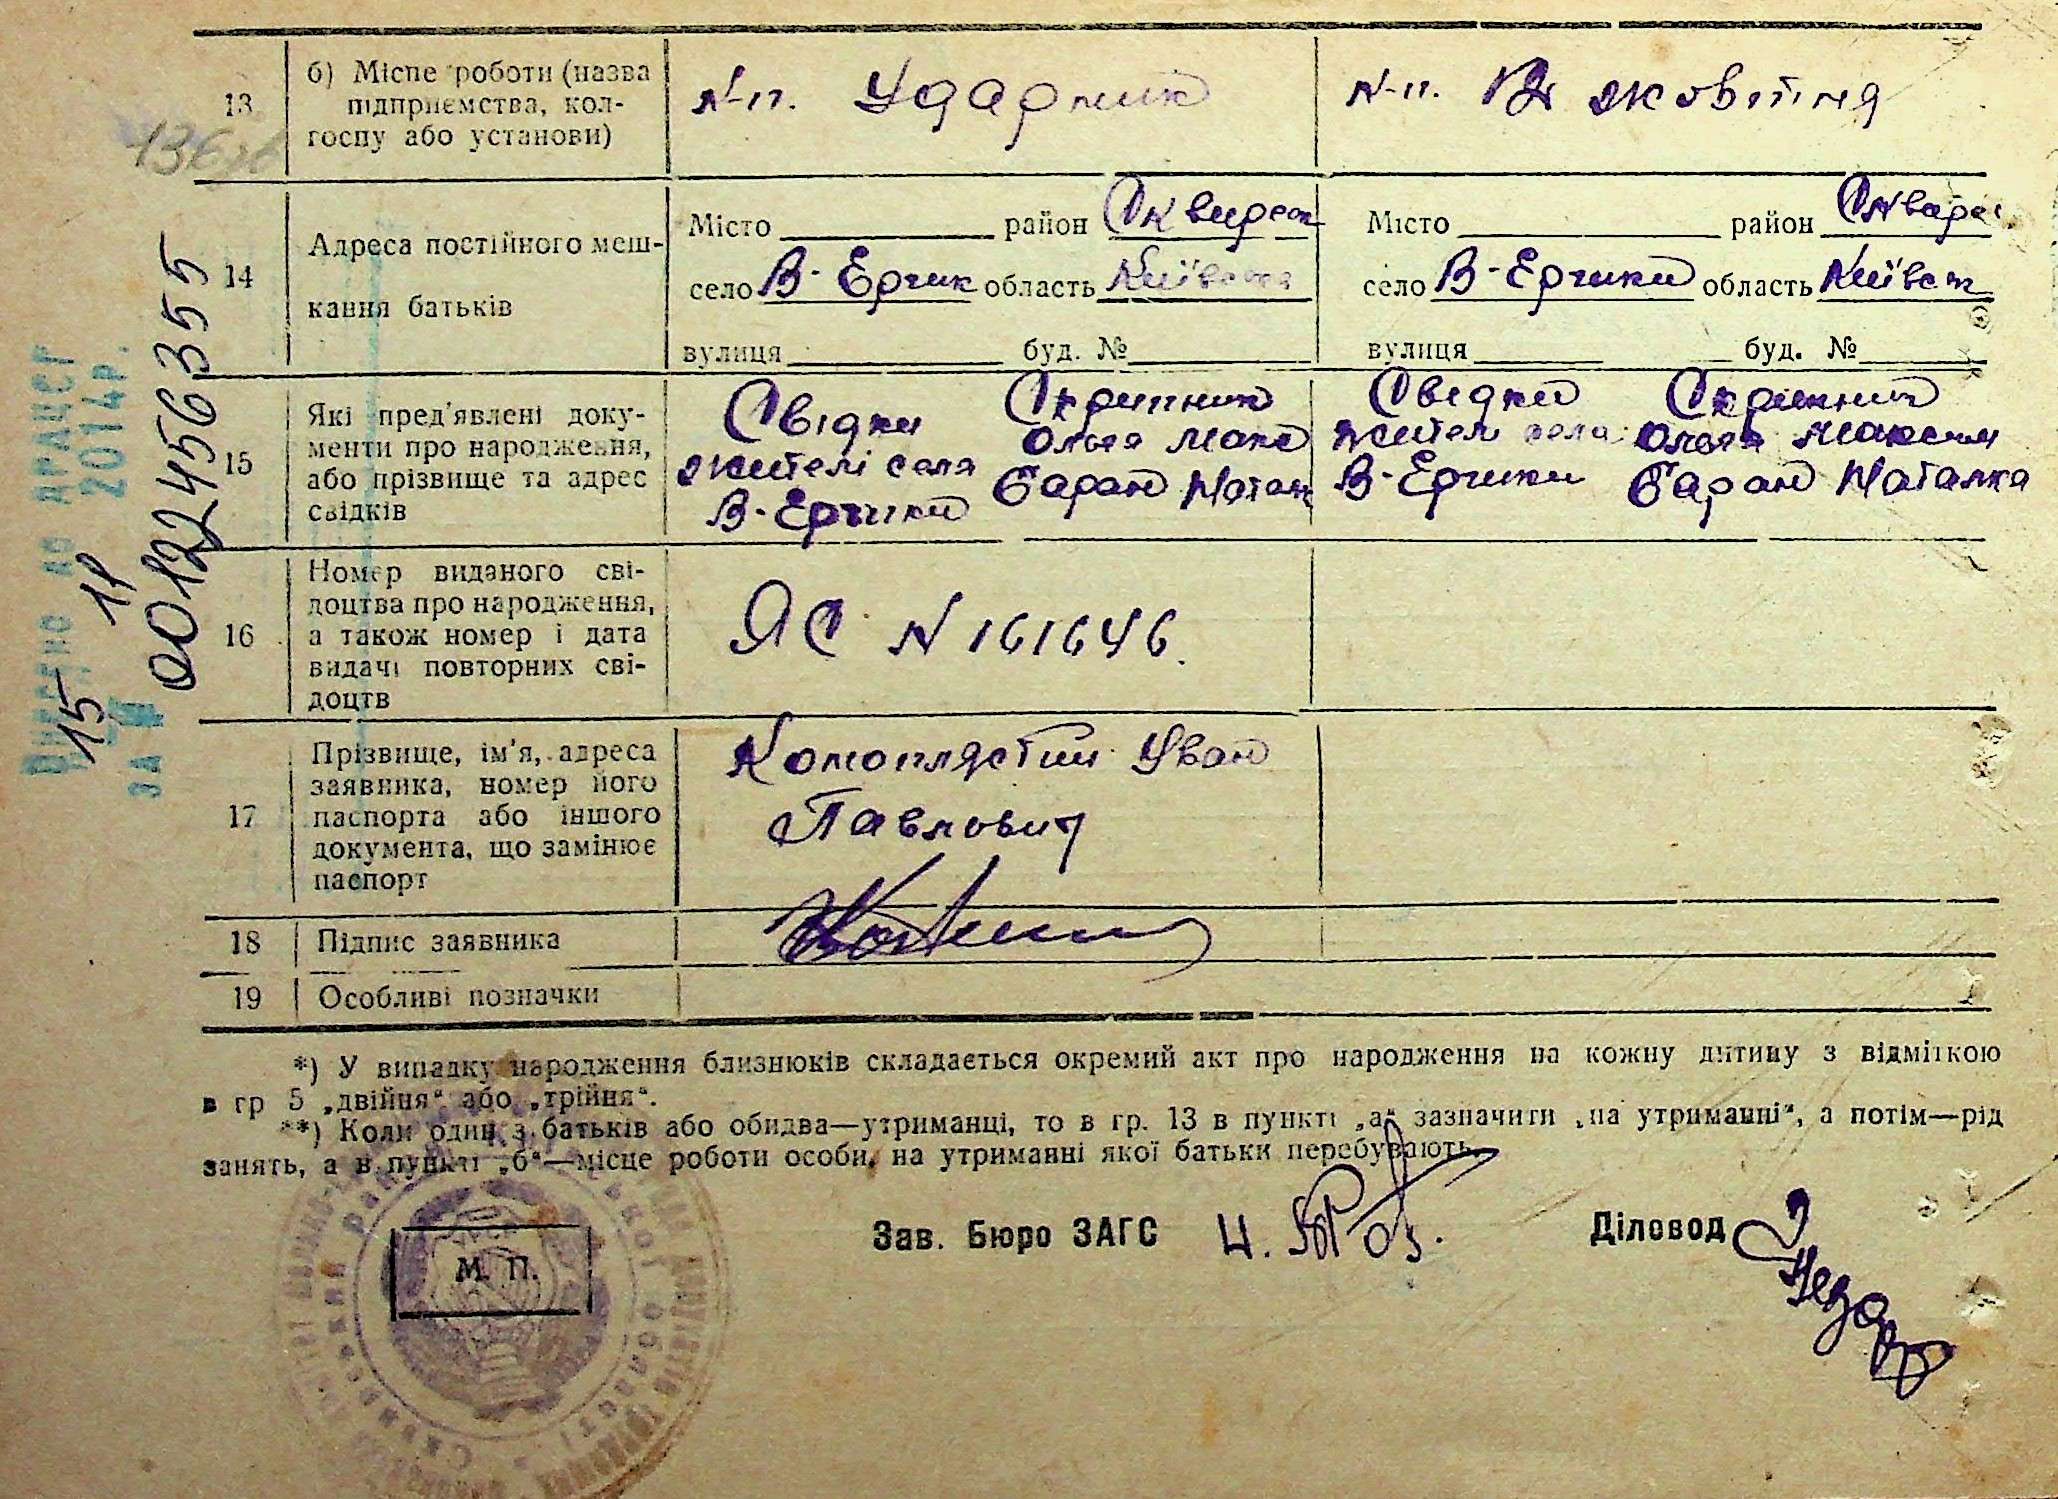 13
б) Місце роботи (назва
підприємства, кол-
госпу або установи)
к-п. Ударник
к-п. жовтня
14
Адреса постійного меш-
кання батьків
Місто район Сквирск
село В-Ерчик область Київська
вулиця буд. №
Місто район
село В-Ерчики область Київск
вулиця буд. №
15
Які пред'явлені доку-
менти про народження,
або прізвище та адрес
свідків
Свідки Скрипник
жителі села
В-Ерчики Баран Натал
Свідки Скрипник
жителі села Ольга Максим
В-Ерчики Баран Наталка
16
Номер виданого сві-
доцтва про народження,
а також номер і дата
видачі повторних сві-
доцтв
ЯС N 161646.
17
Прізвище, ім'я, адреса
заявника, номер його
паспорта або іншого
документа, що замінює
паспорт
Коноплястий Иван
Павлович
18
Підпис заявника
19
Особливі позначки
*) У випадку народження близнюків складається окремий акт про народження на кожну дитину з відміткою
в гр 5 „двійня“ або „трійня“.
**) Коли один з батьків або обидва—утриманці, то в гр. 13 в пункті „а“ зазначити „на утриманні“, а потім—рід
занять, а в пункті „б“—місце роботи особи, на утриманні якої батьки перебувають.
Зав. Бюро ЗАГС
Діловод
М. П.
Внесено до ДРАЦСГ
15 11 2014р.
за №
00122456355